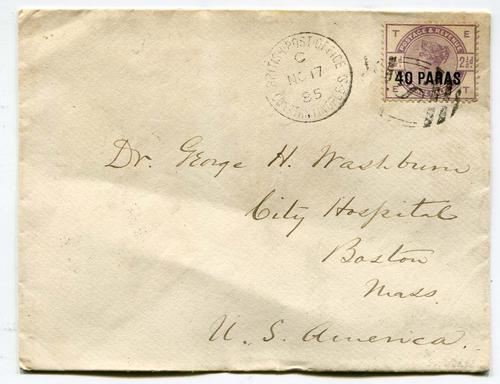 BRITISH POST OFFICE
CONSTANTINOPLE
C
NO 17
85
POSTAGE & REVENUE
T E
2½d
40 PARAS
E T
Dr. George H. Washburn
City Hospital
Boston
Mass.
U. S. America.